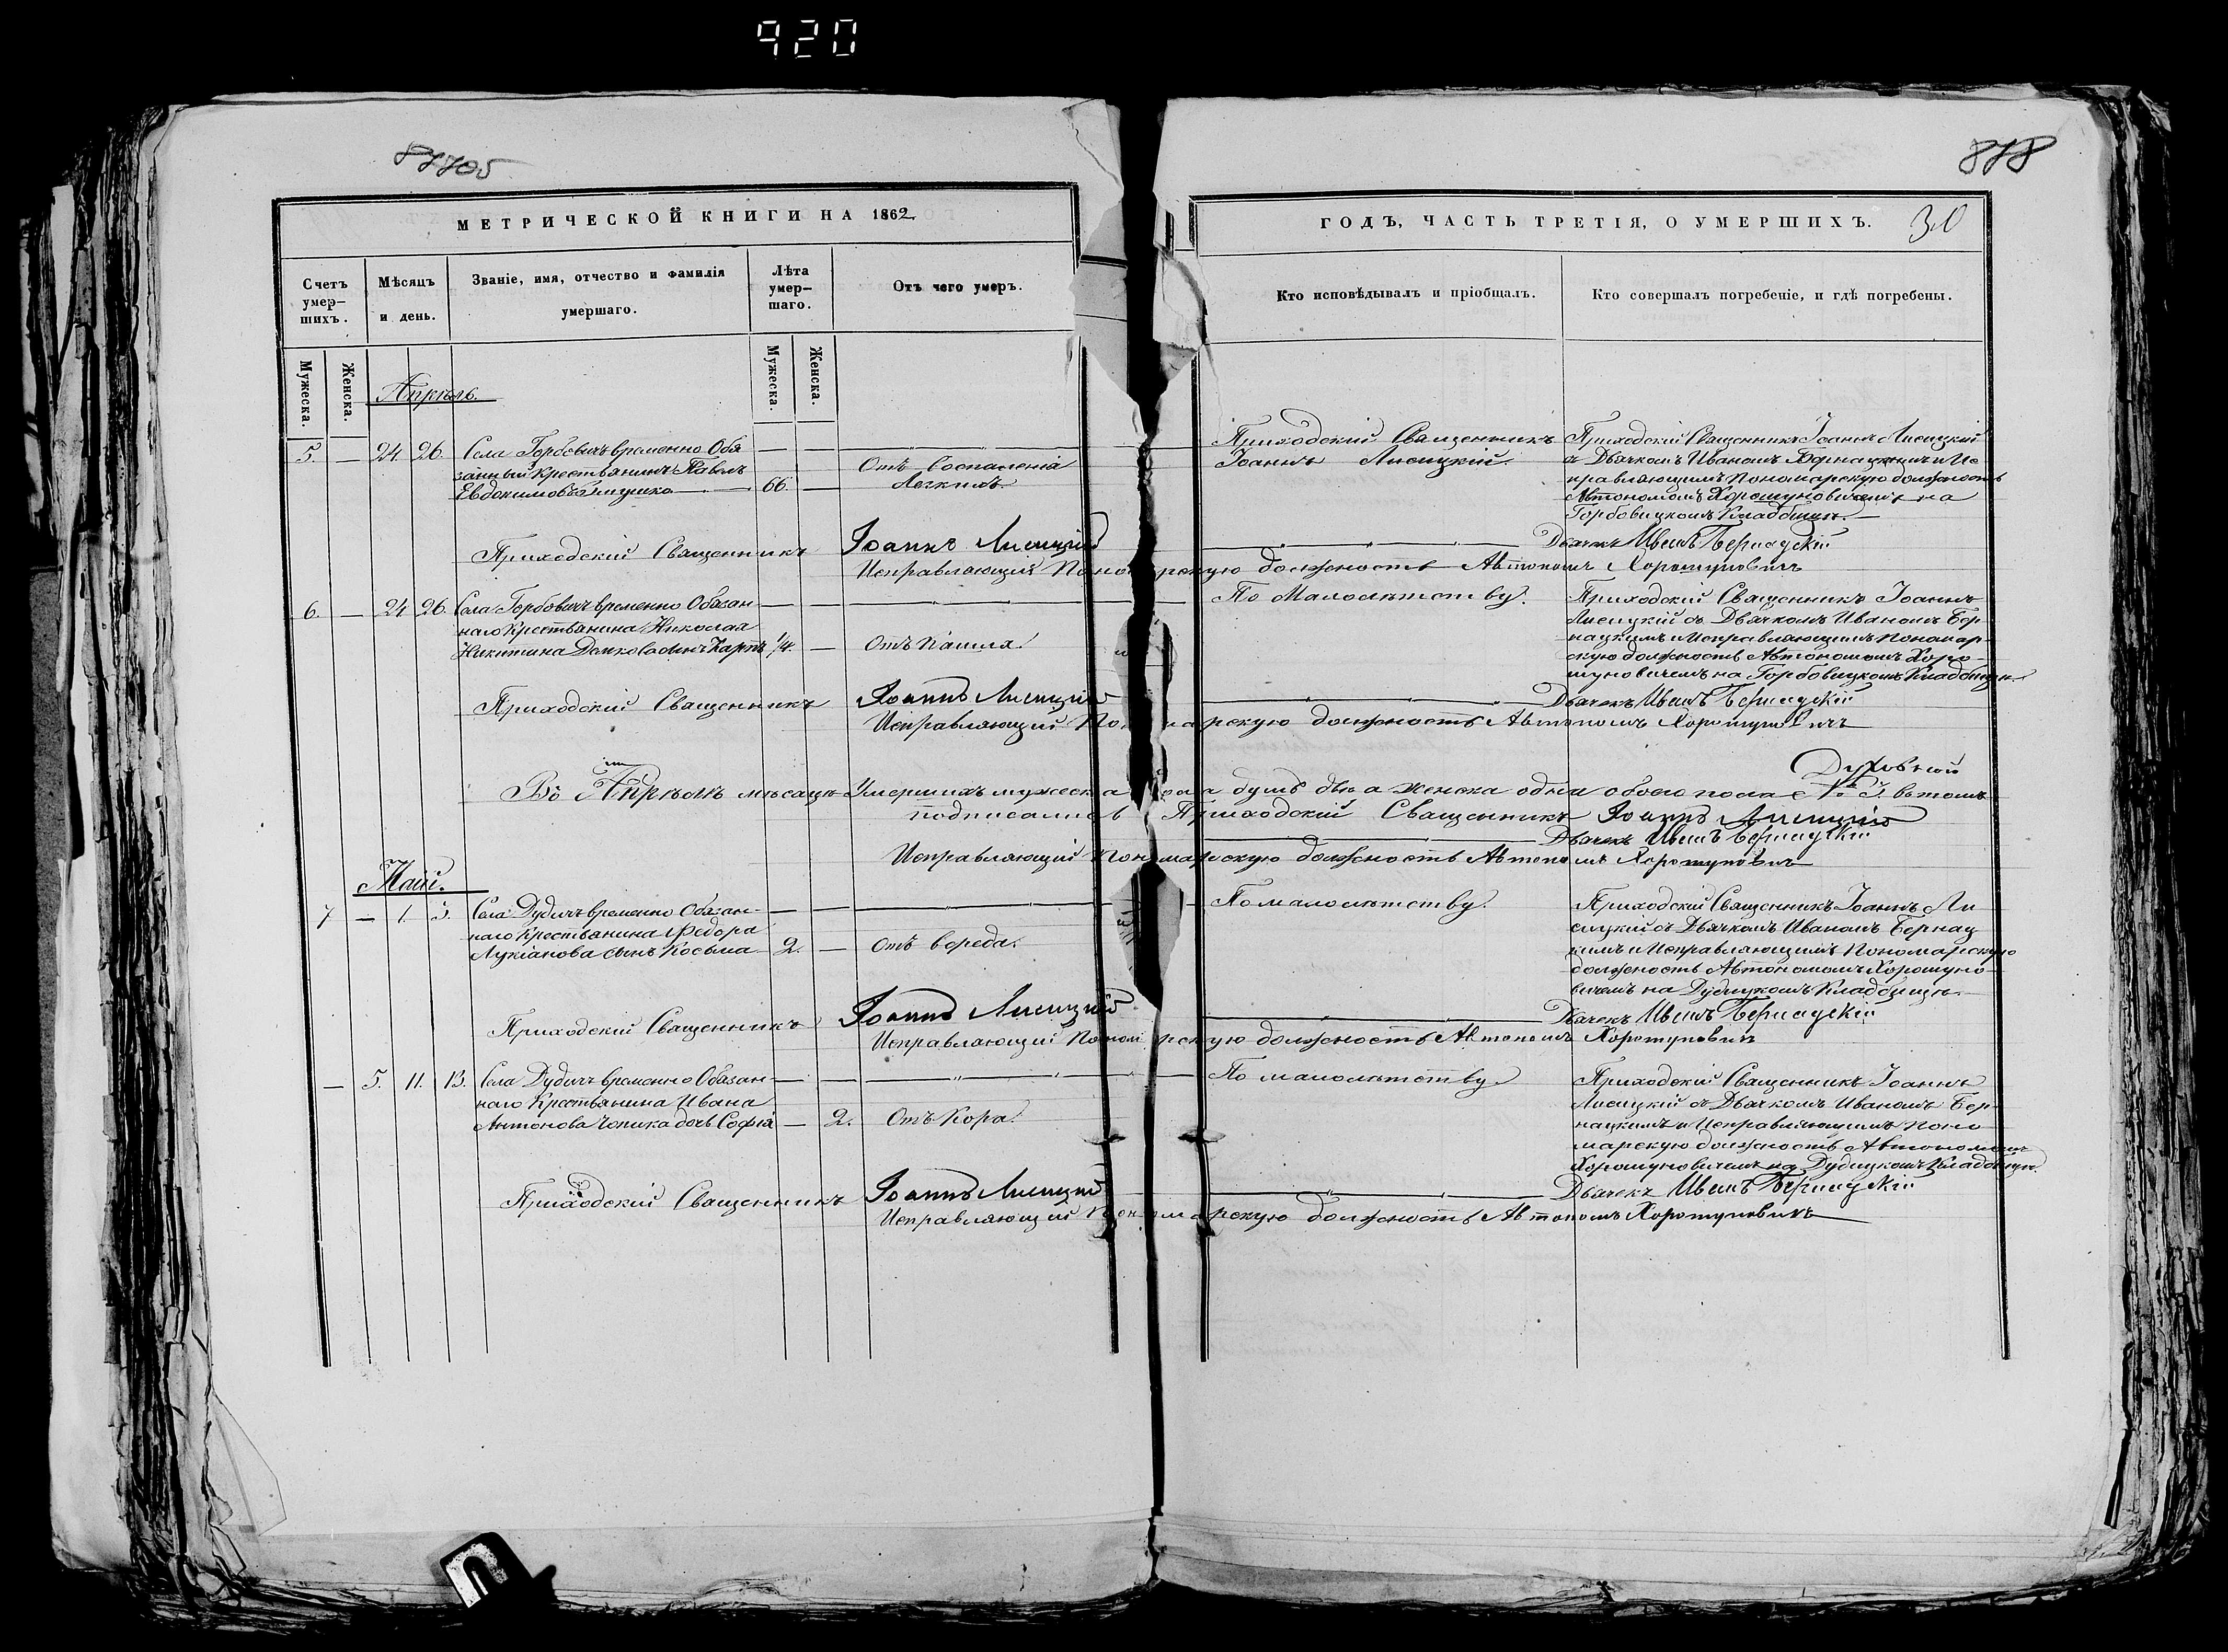 920
87705
878
МЕТРИЧЕСКОЙ КНИГИ НА 1862
ГОДЪ, ЧАСТЬ ТРЕТІЯ, О УМЕРШИХЪ. 30
Счетъ умер-
шихъ.
Мѣсяцъ
и день.
Званіе, имя, отчество и фамилія
умершаго.
Лѣта
умер-
шаго.
Отъ чего умеръ.
Кто исповѣдывалъ и пріобщалъ.
Кто совершалъ погребеніе, и гдѣ погребены.
Мужеска.
Женска.
Мужеска.
Женска.
Апрѣль.
5. — 24 26. Села Горбовичъ временно Обя
занный крестьянинъ Павелъ
Евдокимовъ 66. —
Отъ воспаленія
Легкихъ.
Приходскій Священникъ
Іоаннъ Лисицкій.
Приходскій Священникъ Іоаннъ Лисицкій
съ Дьячкомъ Иваномъ Бернацкимъ и Ис
правляющимъ Пономарскую должность
Автономомъ Хорошуновичемъ на
Горбовицкомъ Кладбищѣ.
Приходскій Священникъ Іоаннъ Лисицкій
Дьячекъ Иванъ Бернадскій
Исправляющій Пономарскую должность Автономъ Хорошуновичъ
6. — 24 26. Села Горбовичъ временно Обязан
наго Крестьянина Николая
Никитина сынъ Карпъ 1/4. — Отъ Кашля.
По Малолѣтству.
Приходскій Священникъ Іоаннъ
Лисицкій съ Дьячкомъ Иваномъ Бер
нацкимъ и Исправляющимъ Пономар-
скую должность Автономомъ Хоро-
шуновичемъ на Горбовицкомъ Кладбищѣ
Приходскій Священникъ Іоаннъ Лисицкій
Дьячекъ Иванъ Бернадскій
Исправляющій Пономарскую должность Автономъ Хорошуновичъ
Духовной
Въ Апрѣлѣ мѣсацѣ Умершихъ мужеска пола душъ двѣ а женска одна обоего пола № 3. въ томъ
подписались Приходскій Священникъ Іоаннъ Лисицкій
Дьячекъ Иванъ Бернадскій
Исправляющій Пономарскую должность Автономъ Хорошуновичъ
Май.
7 — 1. 3. Села Дудичъ временно Обязан-
наго Крестьянина Федора
Лукіанова сынъ Косьма 2. — Отъ вереда.
По малолѣтству.
Приходскій Священникъ Іоаннъ Ли
сицкій съ Дьячкомъ Иваномъ Бернац
кимъ и Исправляющимъ Пономарскую
должность Автономомъ Хорошуно-
вичемъ на Дудицкомъ Кладбищѣ.
Приходскій Священникъ Іоаннъ Лисицкій
Дьячекъ Иванъ Бернадскій
Исправляющій Пономарскую должность Автономъ Хорошуновичъ
— 5. 11. 13. Села Дудичъ временно Обязан-
наго Крестьянина Ивана
Антонова Чопика дочь Софія — 2. Отъ Кора.
По малолѣтству.
Приходскій Священникъ Іоаннъ
Лисицкій съ Дьячкомъ Иваномъ Бер-
нацкимъ и Исправляющимъ Поно
марскую должность Автономомъ
Хорошуновичемъ на Дудицкомъ Кладбищѣ.
Приходскій Священникъ Іоаннъ Лисицкій
Дьячекъ Иванъ Бернадскій
Исправляющій Пономарскую должность Автономъ Хорошуновичъ